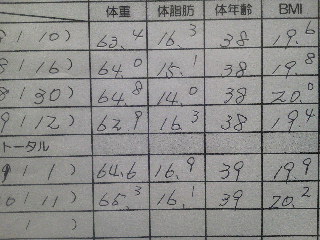 体重 体脂肪 体年齢 BMI
8 / 10 ) 63.4 16.3 38 19.6
8 / 16 ) 64.0 15.1 38 19.8
8 / 30 ) 64.8 14.0 38 20.0
9 / 12 ) 62.9 16.3 38 19.4
トータル
9 / 1 ) 64.6 16.9 39 19.9
10 / 11 ) 65.3 16.1 39 20.2
/ )